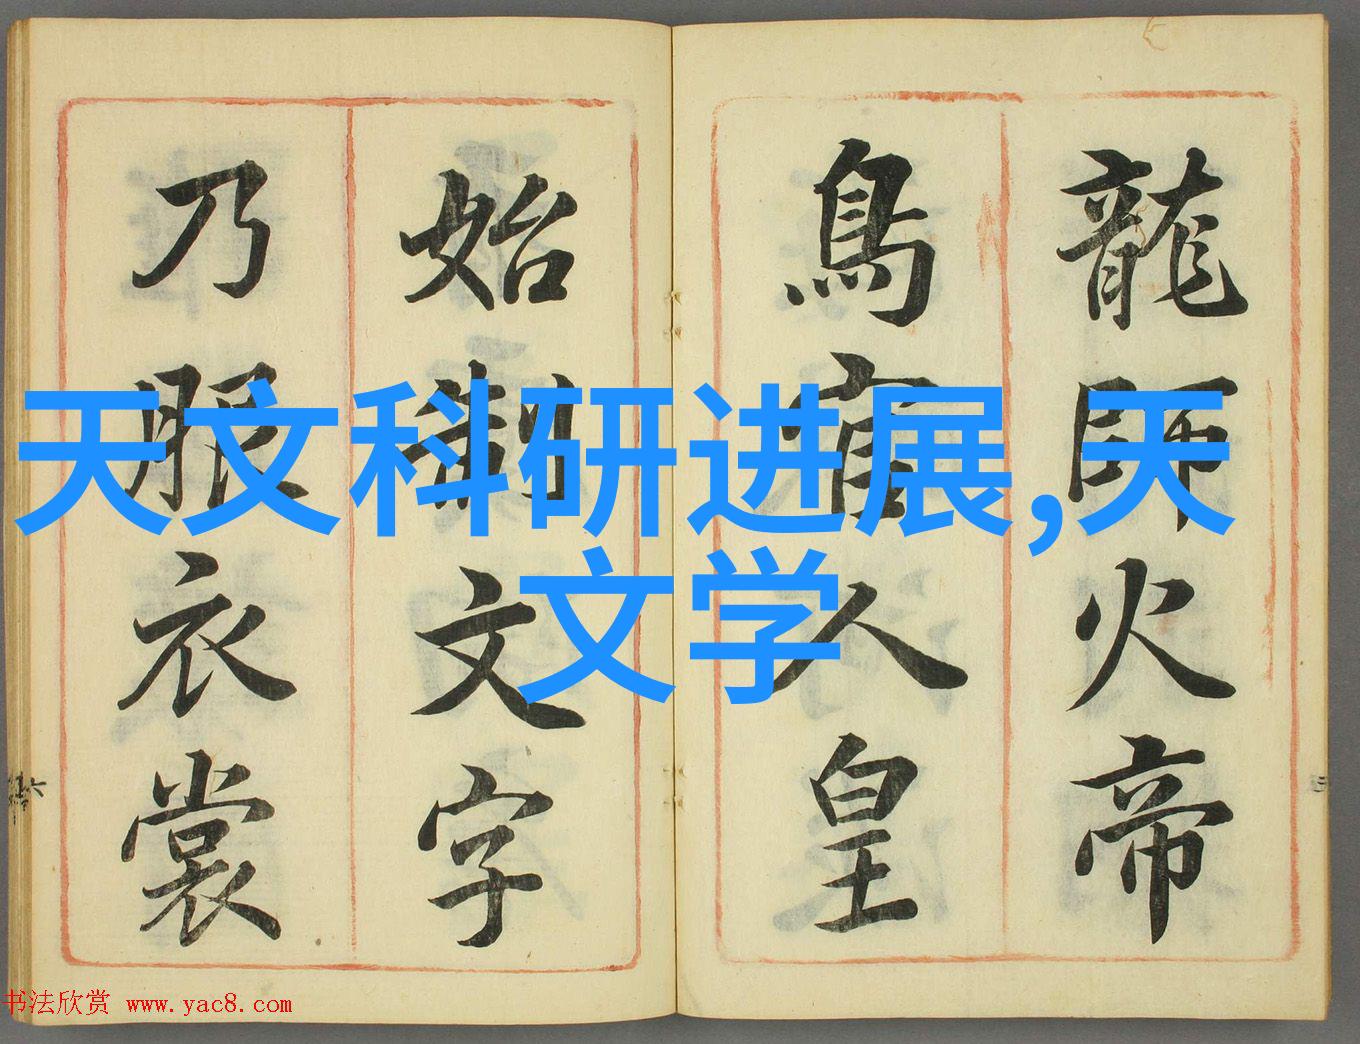 天文科研进展,天
文学
龍師火帝
鳥官人皇
始制文字
乃服衣裳
书法欣赏 www.yac8.com